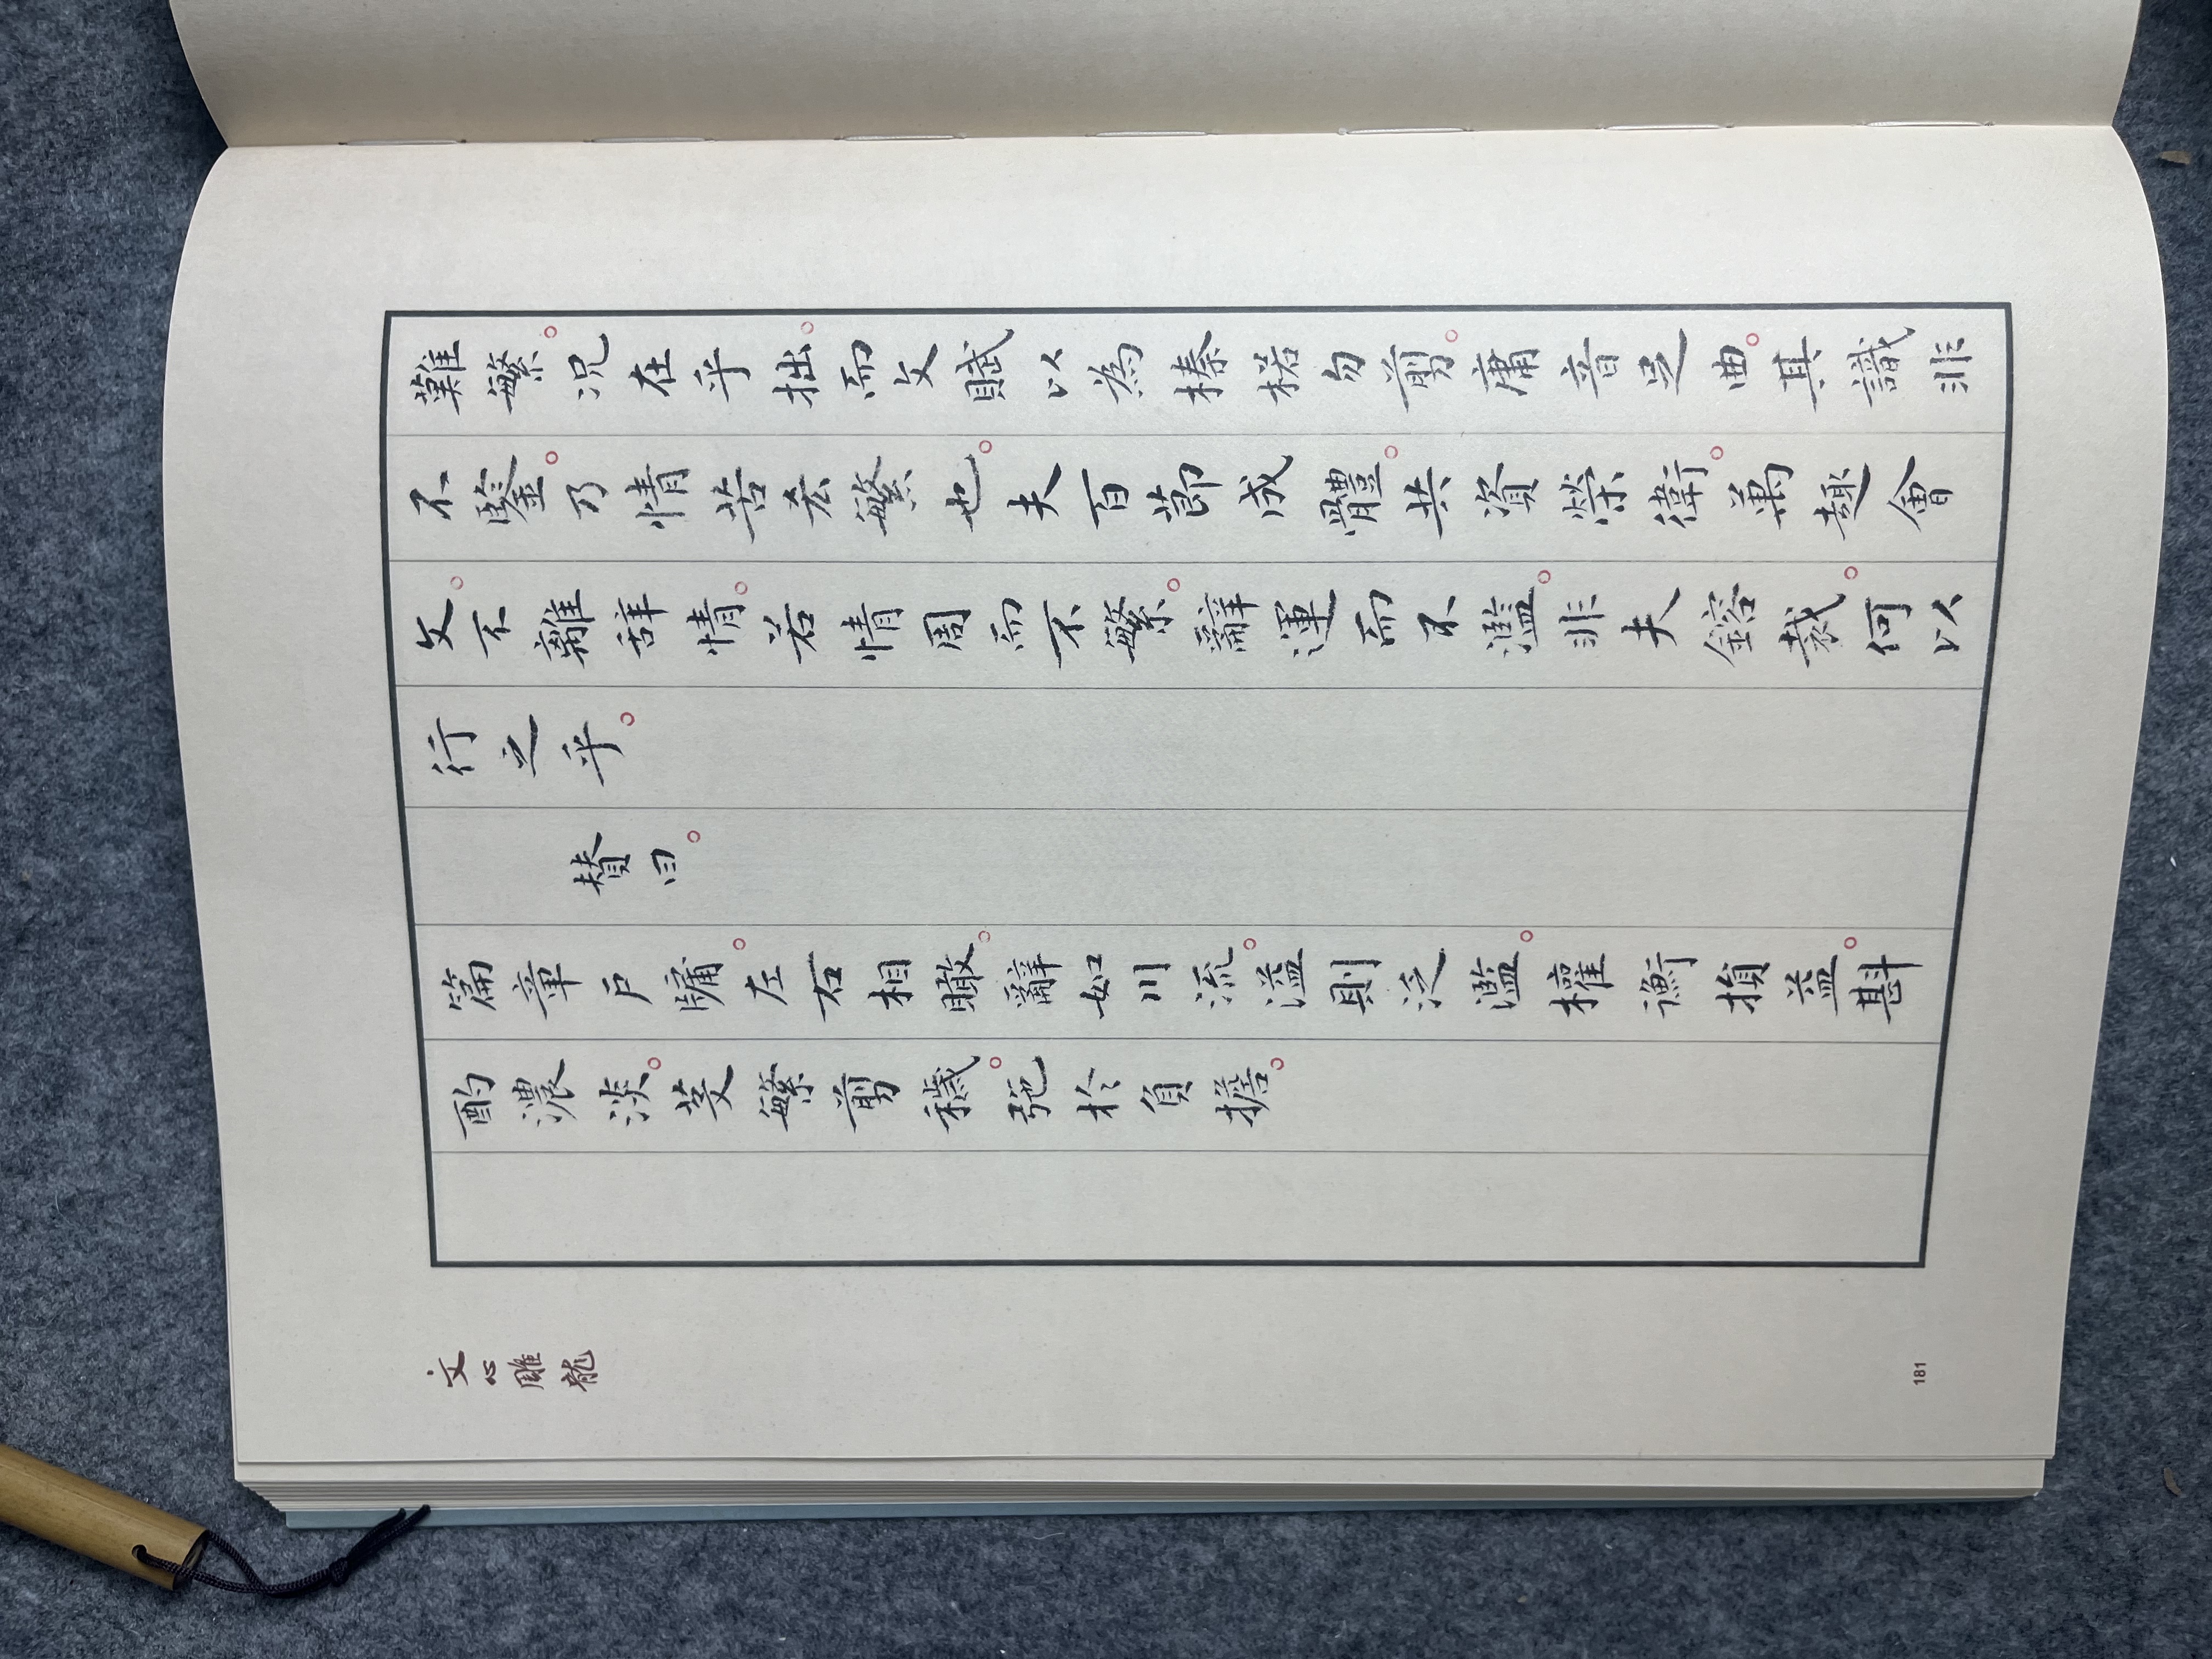 難繁。况在乎拙。而文賦以為榛楛勿剪。庸音足曲。其識非
不鑒。乃情苦芟繁也。夫百莭成體。共資榮衛。萬趣會
文。不離辞情。若情周而不繁。辭運而不濫。非夫鎔裁。何以
行之乎。
賛曰。
篇章戶牖。左右相瞰。辭如川流。溢則泛濫。權衡損益。斟
酌濃淡。芟繁剪穢。弛於負擔。
文心雕龍
181